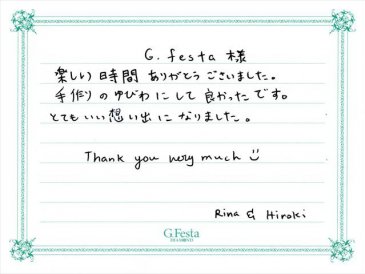 G.festa 様
楽しい時間ありがとうございました。
手作りのゆびわにして良かったです。
とてもいい想い出になりました。
Thank you very much
Rina & Hiroki
G.Festa
DIAMOND